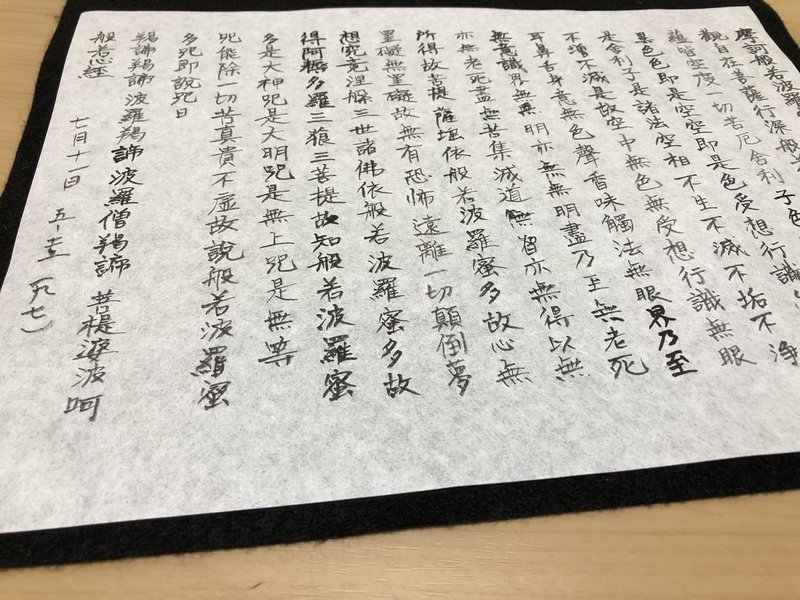 摩訶般若波羅
觀自在菩薩行深般
蘊皆空度一切苦厄舍利子色
異色色即是空空即是色受想行識
是舍利子是諸法空相不生不滅不垢不淨
不增不減是故空中無色無受想行識無眼
耳鼻舌身意無色聲香味觸法無眼界乃至
無意識界無無明亦無無明盡乃至無老死
亦無老死盡無苦集滅道無智亦無得以無
所得故菩提薩埵依般若波羅蜜多故心無
罣礙無罣礙故無有恐怖遠離一切顛倒夢
想究竟涅槃三世諸佛依般若波羅蜜多故
得阿無多羅三狼三菩提故知般若波羅蜜
多是大神咒是大明咒是無上咒是無等
咒能除一切苦真貴不虛故說般若波羅蜜
多咒即說咒日
羯諦羯諦波羅羯諦波羅僧羯諦菩提婆波呵
般若心經
七月十一日